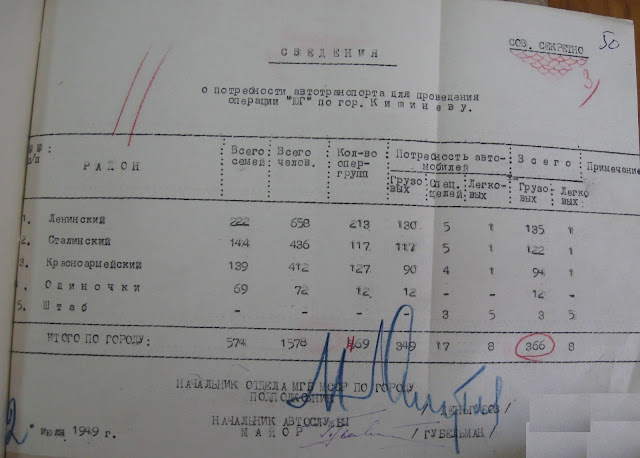 50
СОВ. СЕКРЕТНО
3/
СВЕДЕНИЯ
о потребности автотранспорта для проведения
операции "ЮГ" по гор. Кишиневу.
п/п РАЙОН Всего семей Всего челов. Кол-во опер-групп Потребность авто-мобилей Всего Примечание
Грузовых Спец. целей Легко-вых Грузо вых Легко вых
1. Ленинский 222 658 213 130 5 1 135 1
2. Сталинский 144 436 117 117 5 1 122 1
3. Красноармейский 139 412 127 90 4 1 94 1
. Одиночки 69 72 12 12 - - 12 -
5. Штаб - - - - 3 5 3 5
ИТОГО ПО ГОРОДУ: 574 1578 469 349 17 8 366 8
НАЧАЛЬНИК ОТДЕЛА МГБ МССР ПО ГОРОДУ
ПОДПОЛКОВНИК
НАЧАЛЬНИК АВТОСЛУЖБЫ
МАЙОР /ГУБЕЛЬМАН/
2" июля 1949 г.